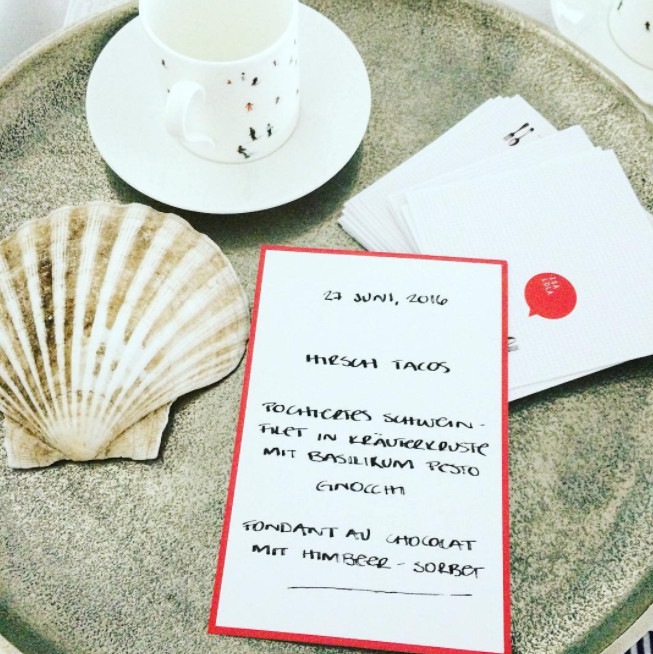 ISA
LOLA
27 JUNI, 2016
HIRSCH TACOS
POCHIERTES SCHWEIN-
FILET IN KRÄUTERKRUSTE
MIT BASILIKUM PESTO
GINOCCHI
FONDANT AU CHOCOLAT
MIT HIMBEER-SORBET